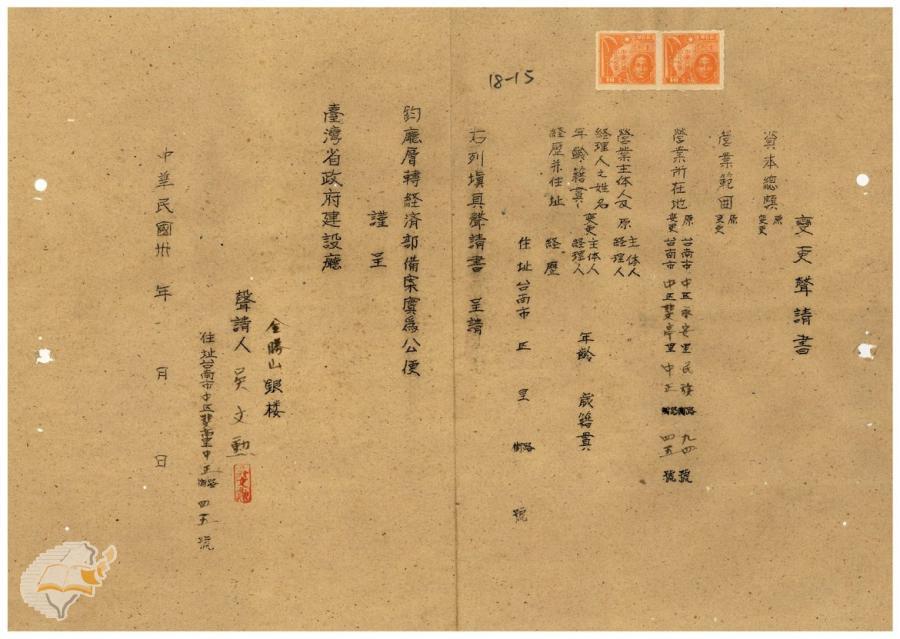 變更聲請書
資本總額 原
變更
營業範圍 原
變更
營業所在地 原 台南市中區永安里民族路街九四號
變更 台南市中區雙亭里中正路街四五號
營業主体人及 原 主体人
經理人之姓名 經理人
年齡籍貫 變更 主体人 年齡 歲籍貫
經理人
經歷并住址 經歷
住址台南市 區 里 路街 號
右列填具聲請書 呈請
鈞廳層轉經済部備案實為公便
謹呈
臺灣省政府建設廳
金勝山銀楼
聲請人 吳文勳
住址台南市中區雙亭里中正路街四五號
中華民國卅 年 月 日
18-15